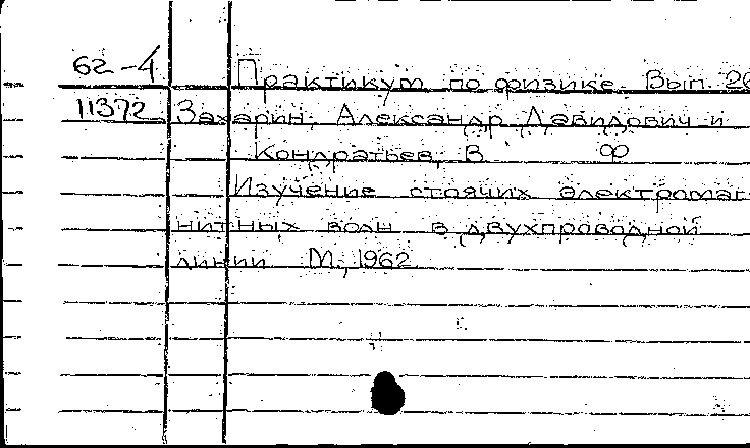 62-4 Практикум по физике. Вып. 26
11372 Захарин, Александр Давидович и
Кондратьев, В. Ф
Изучение стоячих электромаг-
нитных волн в двухпроводной
линии М., 1962